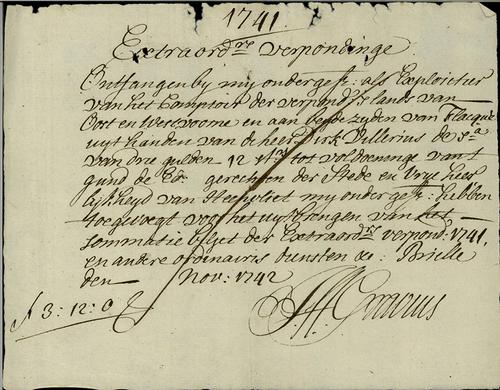 1741
Extraord:re verpondinge
Ontfangen bij mij ondergesz: als Exploictier
van het Comptoir der verpond:s lands van
Oost en Westvoorne en aan beyde zyden van Flacque
uyt handen van de heer Dirk Villerius de s:a
van drie gulden 12 st:rs tot voldoeninge van t
gund de Ed: gerechten der Stede en Vrije heer
lijkheyd van Heenvliet mij ondergesz: hebben
toegevoegt voor het uytbrengen van het
sommatie biljet der Extraord:rs verpond: 1741.
en andere ordinairis diensten &: Brielle
den Nov: 1742
f 3:12:0